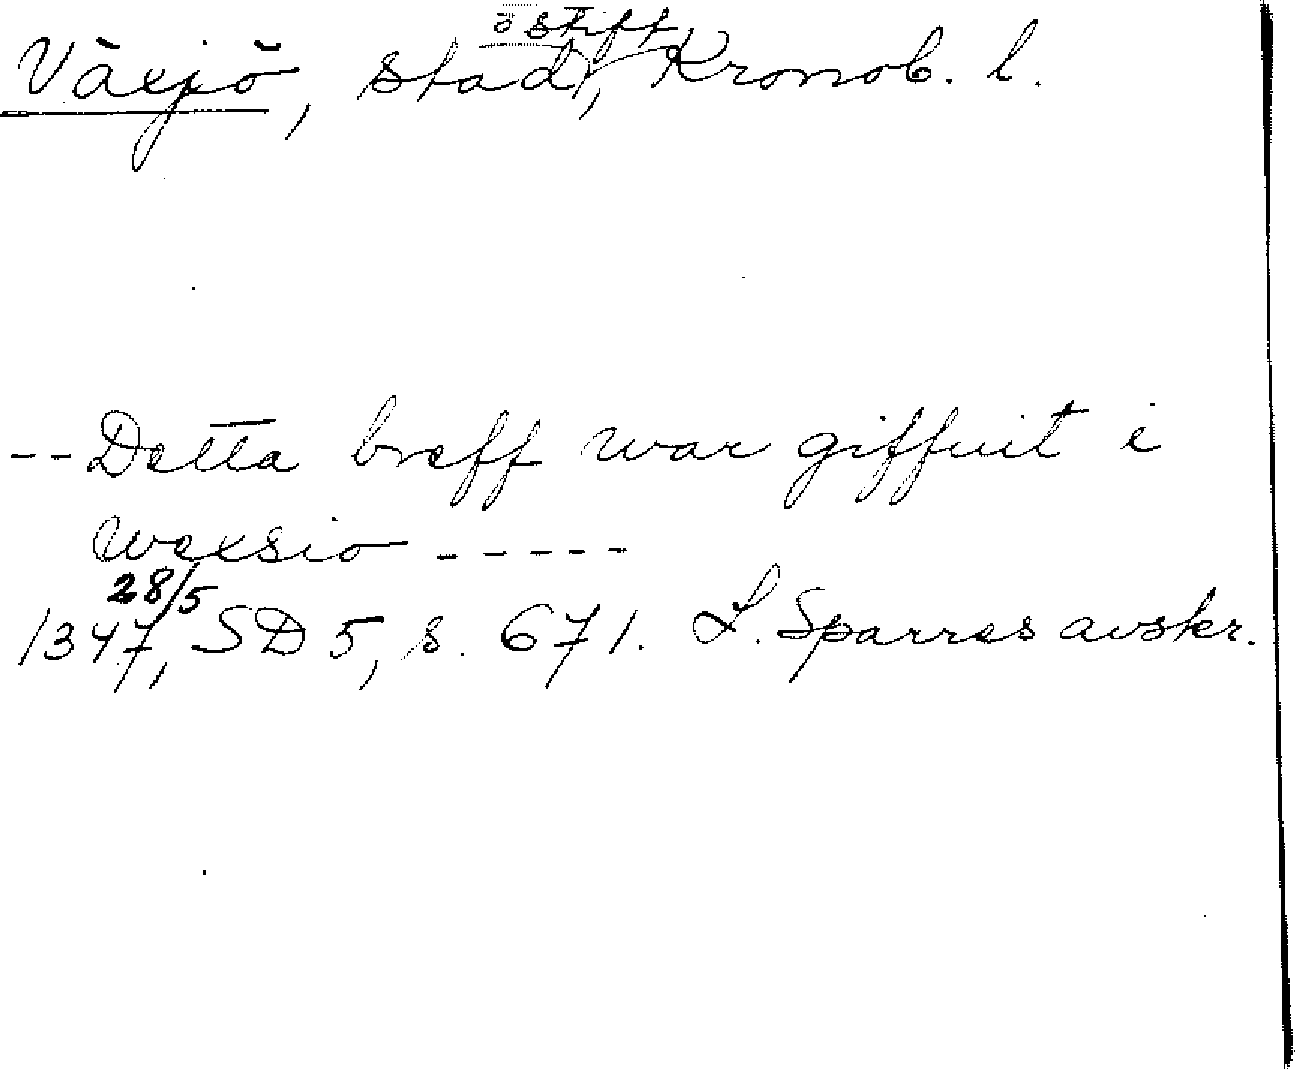 Växjö, stad, Kronob. l.
o stift
-- Detta breff war giffuit i
wexsio -----
1347 28/5, SD 5, s. 671. L. Sparres avskr.